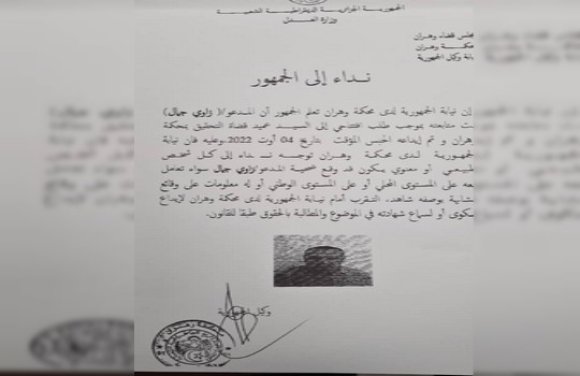 الجمهوريـة الجزائريـة الديمقراطيـة الشعبيـة
وزارة العـــدل
مجلس قضاء وهران
محكمـة وهران
وكيل الجمهورية
نـداء إلى الجمهور
إن نيابة الجمهورية لدى محكمة وهران تعلم الجمهور أن المدعو/( زاوي جمال)
متابعته بموجب طلب افتتاحي إلى السيــد عميد قضاة التحقيق بمحكمة
وهران و تم إيداعه الحبس المؤقت بتاريخ 04 أوت 2022.وعليه فان نيابة
الجمهوريـة لـدى محكمة وهـران توجـه نــداء إلى كـل شخـص
طبيعـي أو معنوي يـكون قد وقع ضحيـة المدعو/زاوي جمال سواء تعامل
معه على المستوى المحلي أو على المستوى الوطني أو له معلومات على وقائع
مشابهة بوصفه شاهد، التقرب أمام نيـابة الجمهورية لدى محكمة وهران لإيداع
شكوى أو لسماع شهادته في الموضوع والمطالبة بالحقوق طبقا للقانون.
وكيل الجمهورية